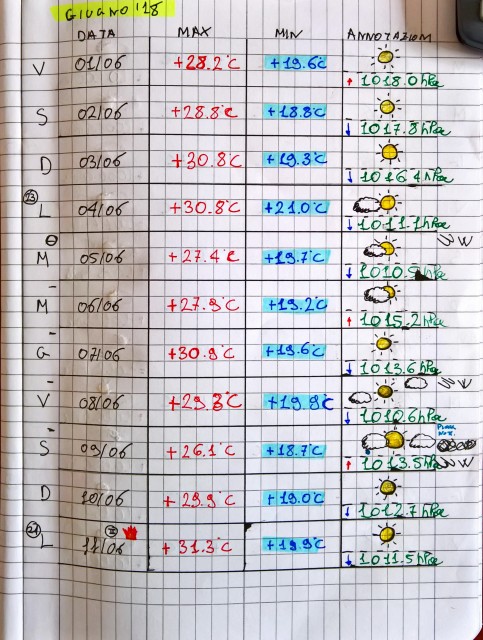 GIUGNO '18
DATA MAX MIN ANNOTAZIONI
V 01/06 +28.2°C +19.6°C ↑ 1018.0 hPa
S 02/06 +28.8°C +18.8°C ↓ 1017.8 hPa
D 03/06 +30.8°C +19.3°C ↓ 1016.4 hPa
23 L 04/06 +30.8°C +21.0°C ↓ 1011.1 hPa
M 05/06 +27.4°C +19.7°C W ↓ 1010.9 hPa
M 06/06 +27.9°C +19.2°C ↑ 1015.2 hPa
G 07/06 +30.9°C +19.6°C ↓ 1013.6 hPa
V 08/06 +29.8°C +19.8°C W ↓ 1010.6 hPa
S 09/06 +26.1°C +18.7°C ↑ 1013.5 hPa W
D 10/06 +29.9°C +19.0°C ↓ 1012.7 hPa
L 11/06 +31.3°C +19.9°C ↓ 1011.5 hPa